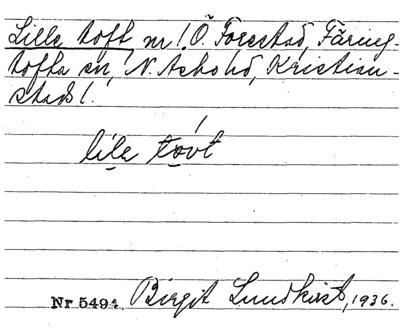 Lille toft nr 1 Ö. Forestad, Färing-
tofta sn, N. Åsbo hd, Kristian-
stads l.
lile tovt
Nr 5494. Birgit Lundkvist, 1936.